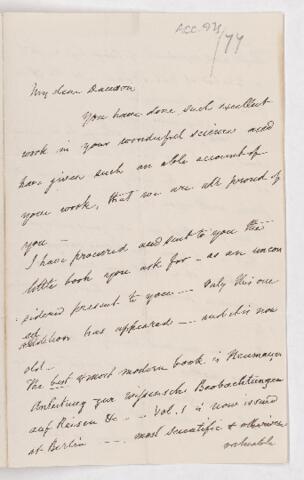 Acc. 93/
77
My dear Dawson
You have done such excellent
work in your wonderful science and
have given such an able account of
your work, that we are all proud of
you —
I have procured and sent to you the
little book you ask for — as an incon
sidered present to you — Only this one
edition has appeared — and it is now
old —
The best & most modern book is Neumayer
Anleitung zur wissensch Beobachtungen
auf Reisen &c — Vol. 1 is now issued
at Berlin — most scientific & otherwise
valuable